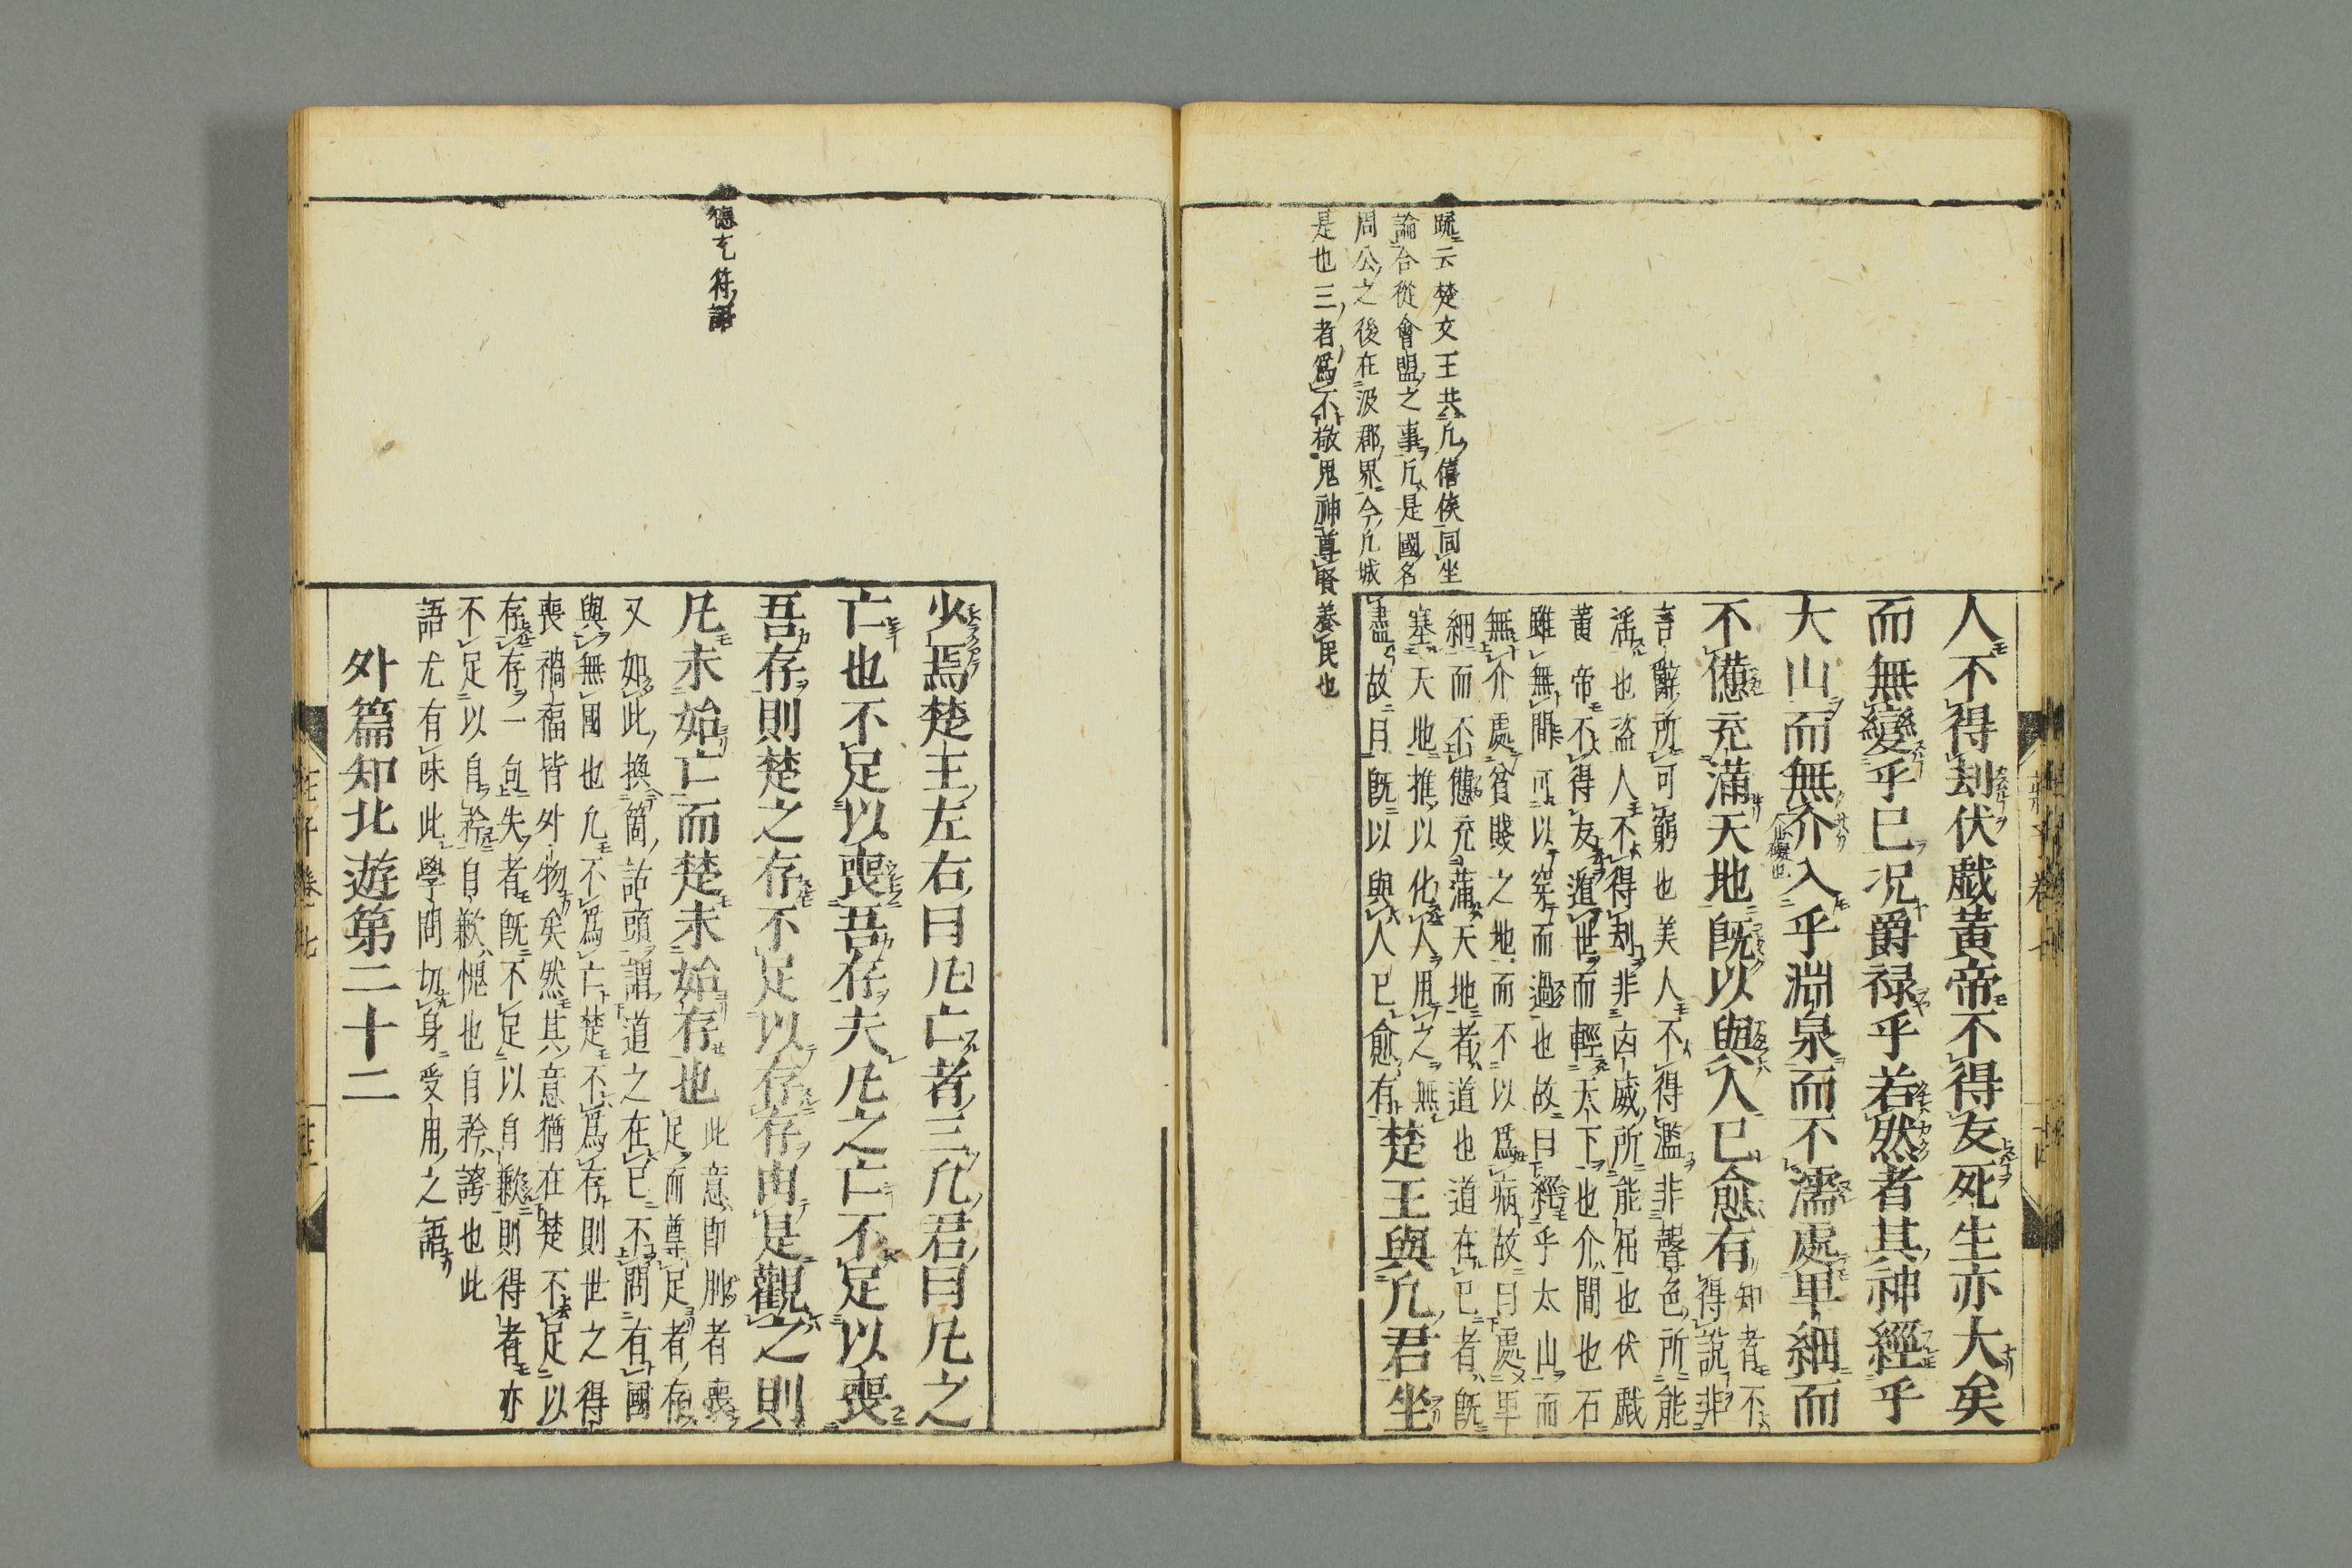 疏云楚文王共凡僖侯同坐
論合從會盟之事凡是國名
周公之後在汲郡界今凡城
是也三者爲不敬鬼神尊賢養民也
人不得刦伏戲黃帝不得友死生亦大矣
而無變乎已况爵禄乎若然者其神經乎
大山而無介入乎淵泉而不濡處卑細而
不憊充滿天地旣以與人已愈有知者不
得說非
言辭所可窮也美人不得濫非聲色所能
滛也盗人不得刦非凶威所能屈也伏戲
黃帝不得友道世而輕天下也介間也石
雖無間可以穿而過也故曰經乎太山而
無介處貧賤之地而不以爲病故曰處卑
細而不憊充滿天地者道也道在已者旣
塞天地推以化人用之無
盡故曰旣以與人已愈有
楚王與凡君坐
德充符語
少焉楚王左右曰凡亡者三凡君曰凡之
亡也不足以喪吾存夫凡之亡不足以喪
吾存則楚之存不足以存存由是觀之則
凡未始亡而楚未始存也
此意卽刖者喪
足而尊足者存
又如此換箇話頭謂道之在已不問有國
與無國也凡不爲亡楚不爲存則世之得
喪禍福皆外物矣然其意猶在楚不足以
存存一句失者旣不足以自歉則得者亦
不足以自矜自歉愧也自矜誇也此
語尤有味此學問切身受用之語
外篇知北遊第二十二